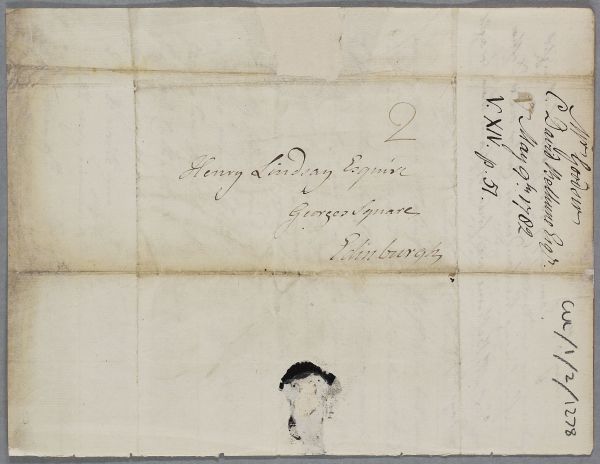 2
Henry Lindsay Esquire
Georges Square
Edinburgh
Mr
C. David Esqr.
May 9th 1782
V. XIV. p. 51.
CUL/1/2/1278